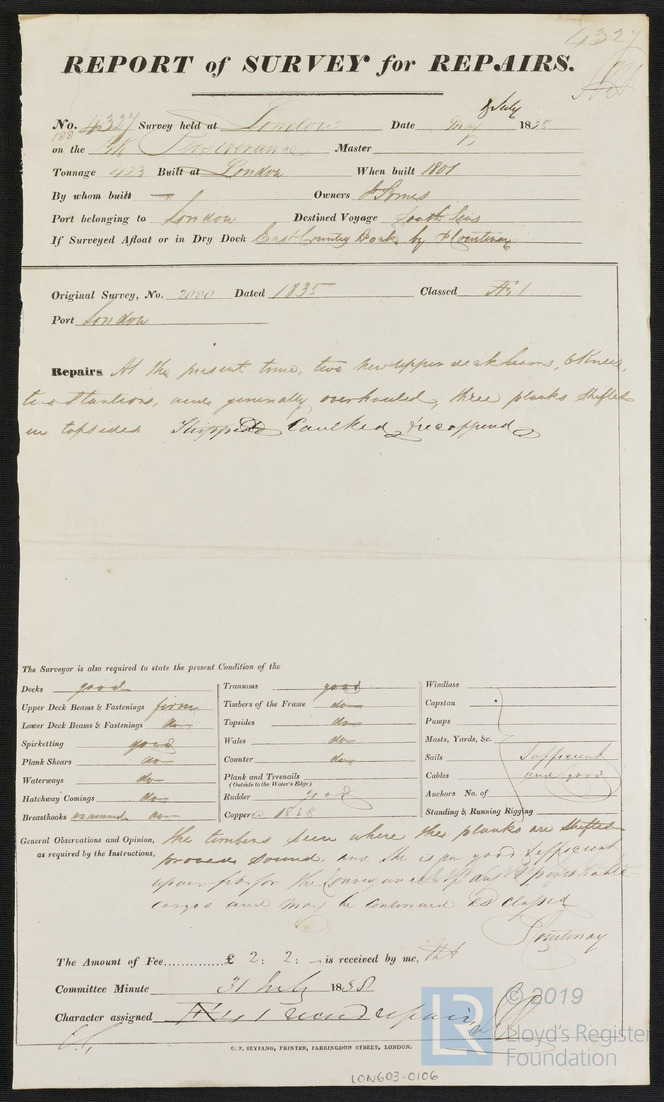 4327
REPORT of SURVEY for REPAIRS.
No. 4327 Survey held at London Date July 1838
188
on the Perseverance Master
Tonnage 423 Built at London When built 1801
By whom built — Owners
Port belonging to London Destined Voyage South Seas
If Surveyed Afloat or in Dry Dock East Country Dock by Courtenay
Original Survey, No. 2000 Dated 1835 Classed Æ 1
Port London
Repairs At the present time, two new upper deck beams, 6 Knees,
two Stantions, and generally overhauled, three planks shifted
in topsides Stripped Caulked & recoppered
The Surveyor is also required to state the present Condition of the
Decks good
Upper Deck Beams & Fastenings firm
Lower Deck Beams & Fastenings do
Spirketting good
Plank Shears do
Waterways do
Hatchway Comings do
Breasthooks examined do
Transoms good
Timbers of the Frame do
Topsides do
Wales do
Counter do
Plank and Treenails
(Outside to the Water's Edge)
Rudder good
Copper 1838
Windlass
Capstan
Pumps
Masts, Yards, &c.
Sails Sufficient
Cables and good
Anchors No. of
Standing & Running Rigging
General Observations and Opinion, the timbers seen where the planks are shifted
as required by the Instructions, proved sound, and she is in good & efficient
repair fit for the Conveyance of dry & perishable
cargos and may be continued as classed
Courtenay
The Amount of Fee..............£ 2: 2: — is received by me,
Committee Minute 31 July 1838
Character assigned Æ 1 repair
C. F. SEYFANG, PRINTER, FARRINGDON STREET, LONDON.
LON603-0106
© 2019
LR
Lloyd's Register
Foundation